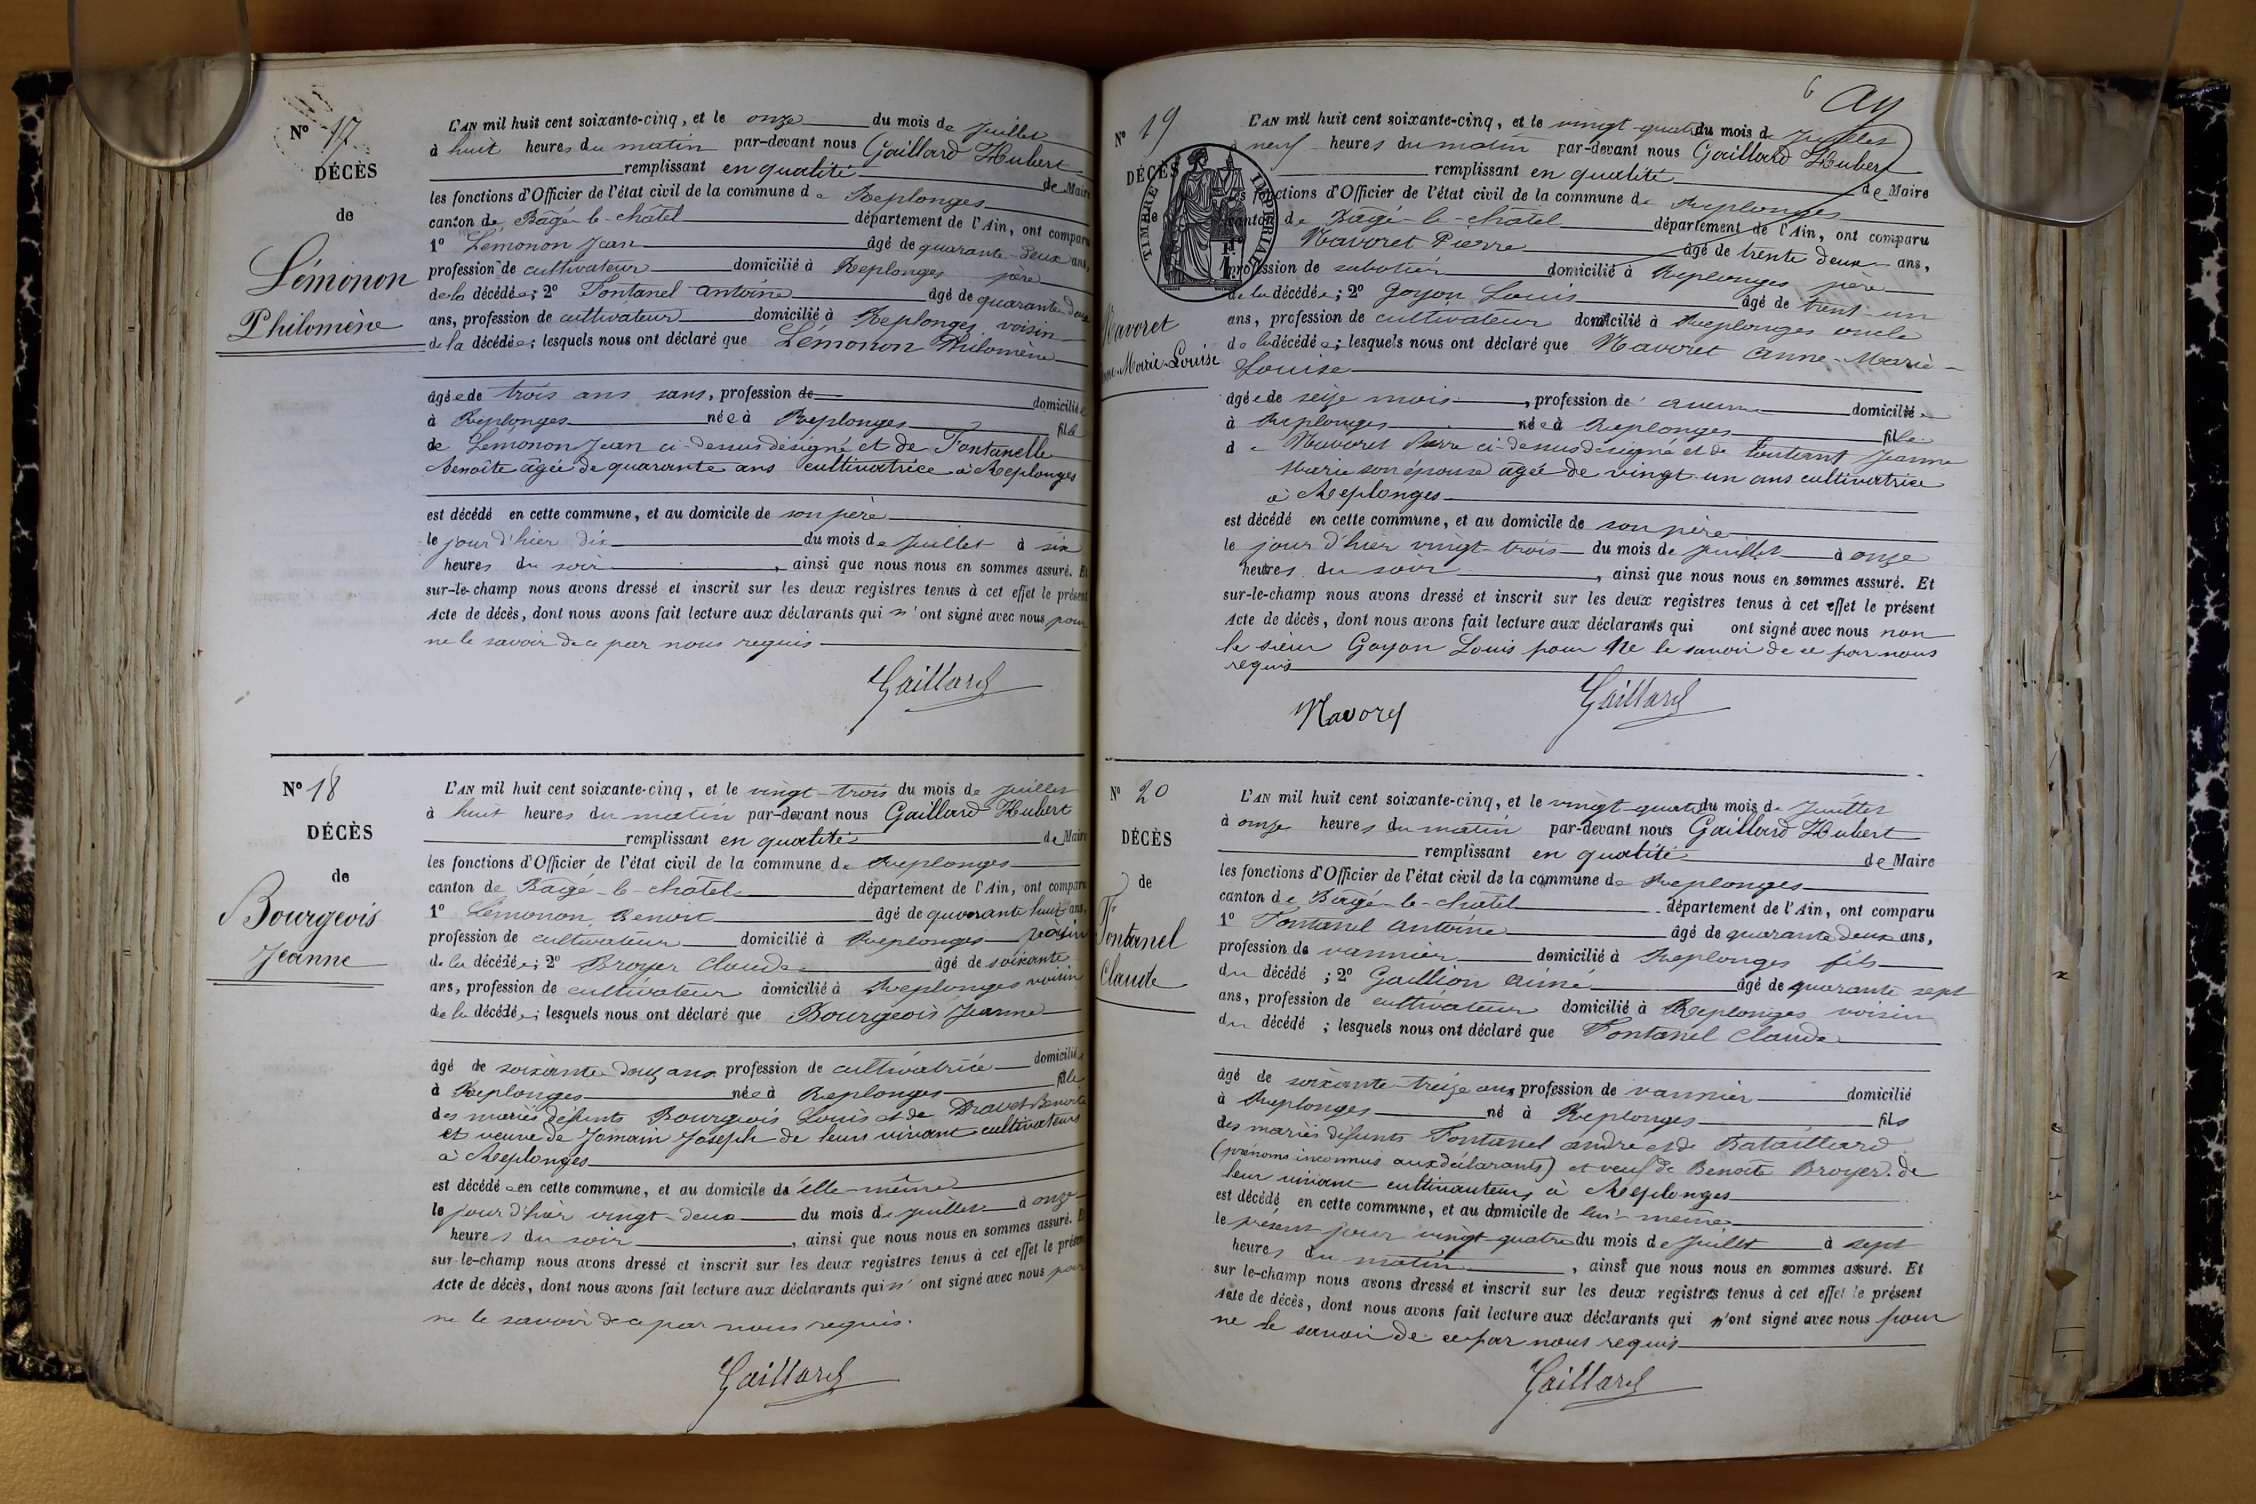 Nº 17
DÉCÈS
de
Lémonon
Philomène
L'AN mil huit cent soixante-cinq, et le onze du mois de Juillet
à huit heures du matin par-devant nous Gaillard Hubert
remplissant en qualité de Maire
les fonctions d'Officier de l'état civil de la commune de Replonges
canton de Bâgé-le-châtel département de l'Ain, ont comparu
1º Lémonon Jean âgé de quarante-deux ans,
profession de cultivateur domicilié à Replonges père
de la décédée; 2º Fontanel antoine âgé de quarante deux
ans, profession de cultivateur domicilié à Replonges voisin
de la décédée; lesquels nous ont déclaré que Lémonon Philomène
âgée de trois ans sans, profession de domiciliée
à Replonges née à Replonges fille
de Lémonon Jean ci-dessus désigné et de Fontanelle
Benoîte âgée de quarante ans cultivatrice à Replonges
est décédé en cette commune, et au domicile de son père
le jour d'hier dix du mois de Juillet à six
heures du soir, ainsi que nous nous en sommes assuré. Et
sur-le-champ nous avons dressé et inscrit sur les deux registres tenus à cet effet le présent
Acte de décès, dont nous avons fait lecture aux déclarants qui n'ont signé avec nous pour
ne le savoir de ce par nous requis
Gaillard
Nº 18
DÉCÈS
de
Bourgeois
Jeanne
L'AN mil huit cent soixante-cinq, et le vingt-trois du mois de Juillet
à huit heures du matin par-devant nous Gaillard Hubert
remplissant en qualité de Maire
les fonctions d'Officier de l'état civil de la commune de Replonges
canton de Bâgé-le-châtel département de l'Ain, ont comparu
1º Lémonon Benoit âgé de quarante huit ans,
profession de cultivateur domicilié à Replonges voisin
de la décédée; 2º Broyer Claude âgé de soixante
ans, profession de cultivateur domicilié à Replonges voisin
de la décédée; lesquels nous ont déclaré que Bourgeois Jeanne
âgé de soixante-douze ans profession de cultivatrice domiciliée
à Replonges née à Replonges fille
des mariés défunts Bourgeois Louis et de Dravet Benoite
et veuve de Jomain Joseph de leur vivant cultivateurs
à Replonges
est décédée en cette commune, et au domicile de elle-même
le jour d'hier vingt-deux du mois de juillet à onze
heures du soir, ainsi que nous nous en sommes assuré. Et
sur-le-champ nous avons dressé et inscrit sur les deux registres tenus à cet effet le présent
Acte de décès, dont nous avons fait lecture aux déclarants qui n'ont signé avec nous pour
ne le savoir de ce par nous requis.
Gaillard
6
Nº 19
DÉCÈS
de
Navoret
Marie-Louise
TIMBRE IMPERIAL
L'AN mil huit cent soixante-cinq, et le vingt-quatre du mois de Juillet
neuf heures du matin par-devant nous Gaillard Hubert
remplissant en qualité de Maire
les fonctions d'Officier de l'état civil de la commune de Replonges
canton de Bâgé-le-châtel département de l'Ain, ont comparu
Navoret Pierre âgé de trente deux ans,
profession de sabotier domicilié à Replonges père
de la décédée; 2º Goyon Louis âgé de trent-un
ans, profession de cultivateur domicilié à Replonges oncle
de la décédée; lesquels nous ont déclaré que Navoret anne-Marie-
Louise
âgée de seize mois, profession de aucune domiciliée
à Replonges née à Replonges fille
de Navoret Pierre ci-dessus désigné et de Jeanne
Marie son épouse âgée de vingt-un ans cultivatrice
à Replonges
est décédé en cette commune, et au domicile de son père
le jour d'hier vingt-trois du mois de juillet à onze
heures du soir, ainsi que nous nous en sommes assuré. Et
sur-le-champ nous avons dressé et inscrit sur les deux registres tenus à cet effet le présent
Acte de décès, dont nous avons fait lecture aux déclarants qui ont signé avec nous non
le sieur Goyon Louis pour ne le savoir de ce par nous
requis
Navoret Gaillard
Nº 20
DÉCÈS
de
Fontanel
Claude
L'AN mil huit cent soixante-cinq, et le vingt-quatre du mois de Juillet
à onze heures du matin par-devant nous Gaillard Hubert
remplissant en qualité de Maire
les fonctions d'Officier de l'état civil de la commune de Replonges
canton de Bâgé-le-châtel département de l'Ain, ont comparu
1º Fontanel antoine âgé de quarante deux ans,
profession de vannier domicilié à Replonges fils
du décédé; 2º Gaillion aimé âgé de quarante sept
ans, profession de cultivateur domicilié à Replonges voisin
du décédé; lesquels nous ont déclaré que Fontanel Claude
âgé de soixante-treize ans profession de vannier domicilié
à Replonges né à Replonges fils
des mariés défunts Fontanel andré et de Bataillard
(prénoms inconnus aux déclarants) et veuf de Benoîte Broyer de
leur vivant cultivateurs à Replonges
est décédé en cette commune, et au domicile de lui-même
le présent jour vingt-quatre du mois de Juillet à sept
heures du matin, ainsi que nous nous en sommes assuré. Et
sur le-champ nous avons dressé et inscrit sur les deux registres tenus à cet effet le présent
Acte de décès, dont nous avons fait lecture aux déclarants qui n'ont signé avec nous pour
ne le savoir de ce par nous requis
Gaillard